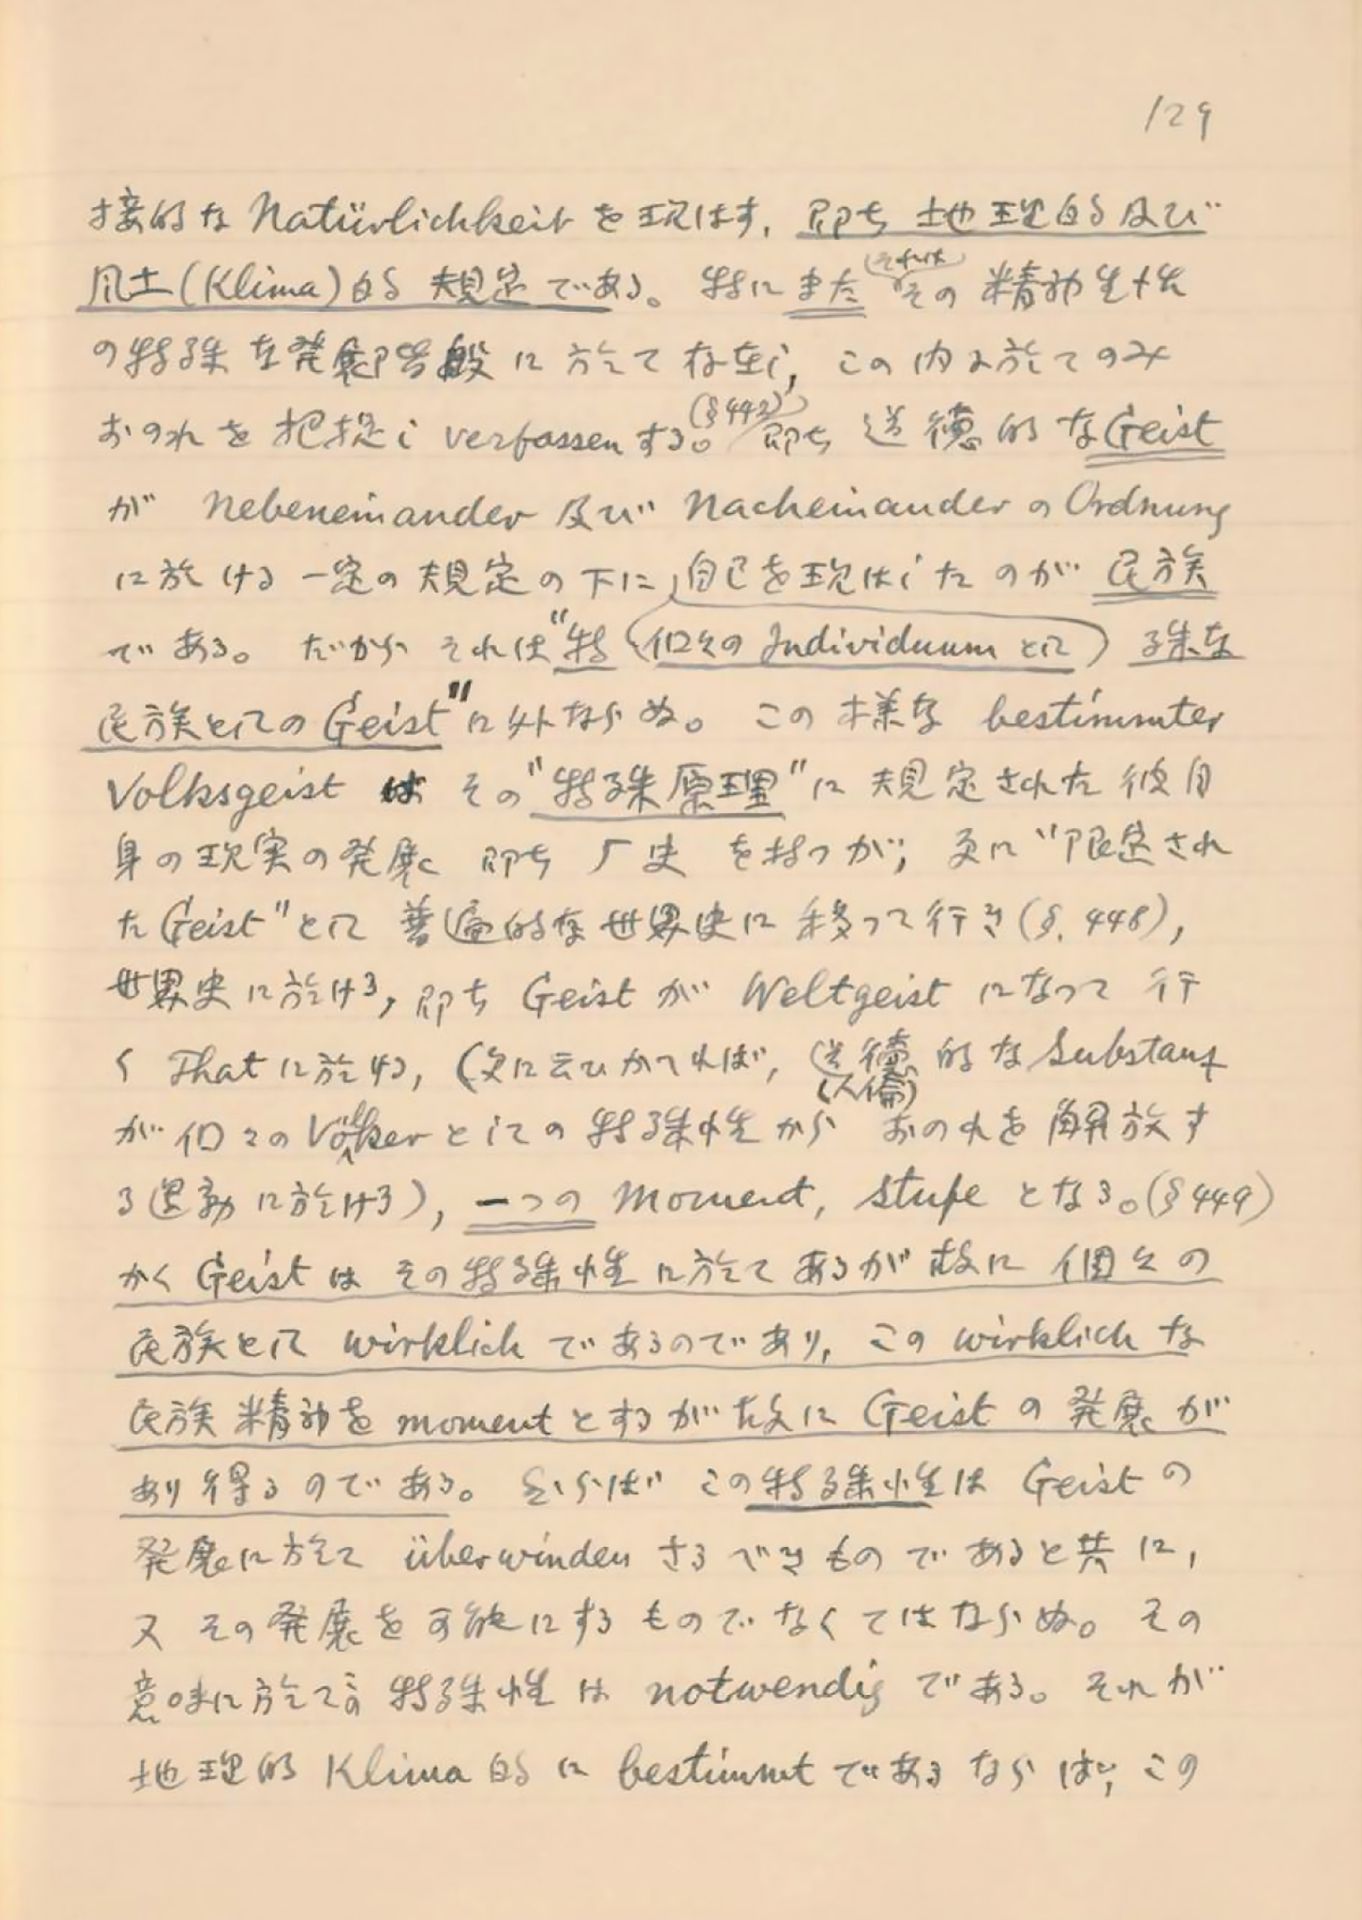 129
接的な Natürlichkeit を現はす、即ち地理的及び
風土(Klima)的規定である。特にまた(それは)その精神生活
の特殊な発展階段に於て存在し、この内に於てのみ
おのれを把捉し verfassen する。(§442) 即ち 道徳的な Geist
が Nebeneinander 及び Nacheinander の Ordnung
に於ける一定の規定の下に、自己を現はしたのが民族
である。だから それは"特(個々の Individuum として)殊な
民族としての Geist"に外ならぬ。この様な bestimmter
Volksgeist は その"特殊原理"に規定された彼自
身の現実の発展 即ち 歴史 を持つが、更に"限定され
た Geist"として 普遍的な世界史に移って行き(§.448),
世界史に於ける, 即ち Geist が Weltgeist になって行
く That に於ける,(次に云ひかへれば, 道徳(人倫)的な Substanz
が個々の Völker としての特殊性から おのれを解放す
る運動に於ける), 一つの Moment, Stufe となる。(§449)
かく Geist は その特殊性に於てあるが故に個々の
民族として wirklich であるのであり, この wirklich な
民族精神を moment とするが故に Geist の発展が
あり得るのである。然らば この特殊性は Geist の
発展に於て überwinden さるべきものであると共に,
又 その発展を可能にするものでなくてはならぬ。その
意味に於てこの特殊性は notwendig である。それが
地理的 Klima 的に bestimmt であるならば, この